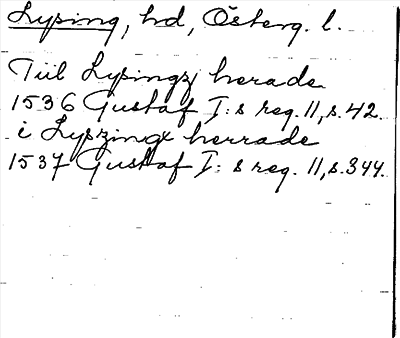 Lysing, hd, Österg. l.
Tiil Lysingzs herade
1536 Gustaf I:s reg. 11, s. 42.
i Lyszinge herrade
1537 Gustaf I:s reg. 11, s. 344.